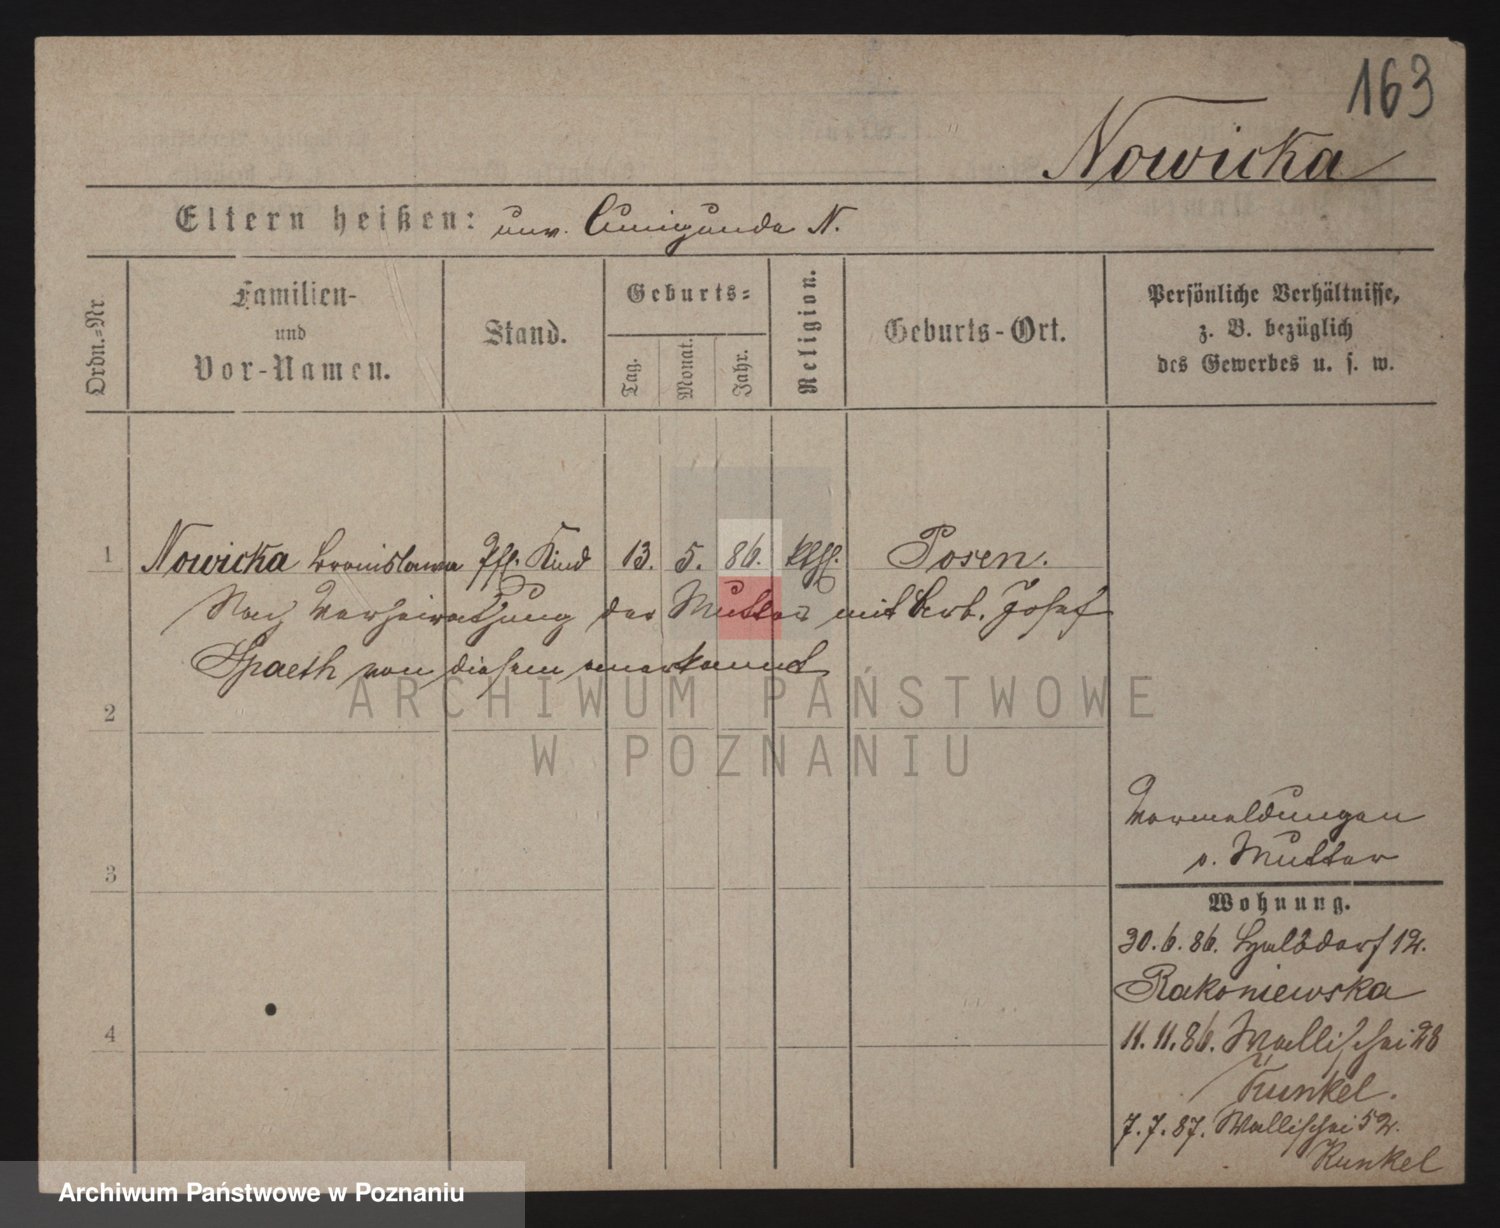 163
Nowicka
Eltern heißen: unv. Cunigunda N.
Ordn.-Nr.
Familien-
und
Vor-Namen.
Stand.
Geburts-
Tag.
Monat.
Jahr.
Religion.
Geburts-Ort.
Persönliche Verhältnisse,
z. B. bezüglich
des Gewerbes u. s. w.
1 Nowicka Bronislawa Pfl. Kind 13. 5. 86. kth. Posen.
Nach Verheiratung der Mutter mit Arb. Josef
Spaeth von diesem anerkannt
ARCHIWUM PAŃSTWOWE
W POZNANIU
2
3
4
Vormeldungen
s. Mutter
Wohnung.
30. 6. 86. Halbdorf 12.
Rakoniewska
11. 11. 86. Wallischei 28
Kunkel.
7. 7. 87. Wallischei 52.
Kunkel
Archiwum Państwowe w Poznaniu